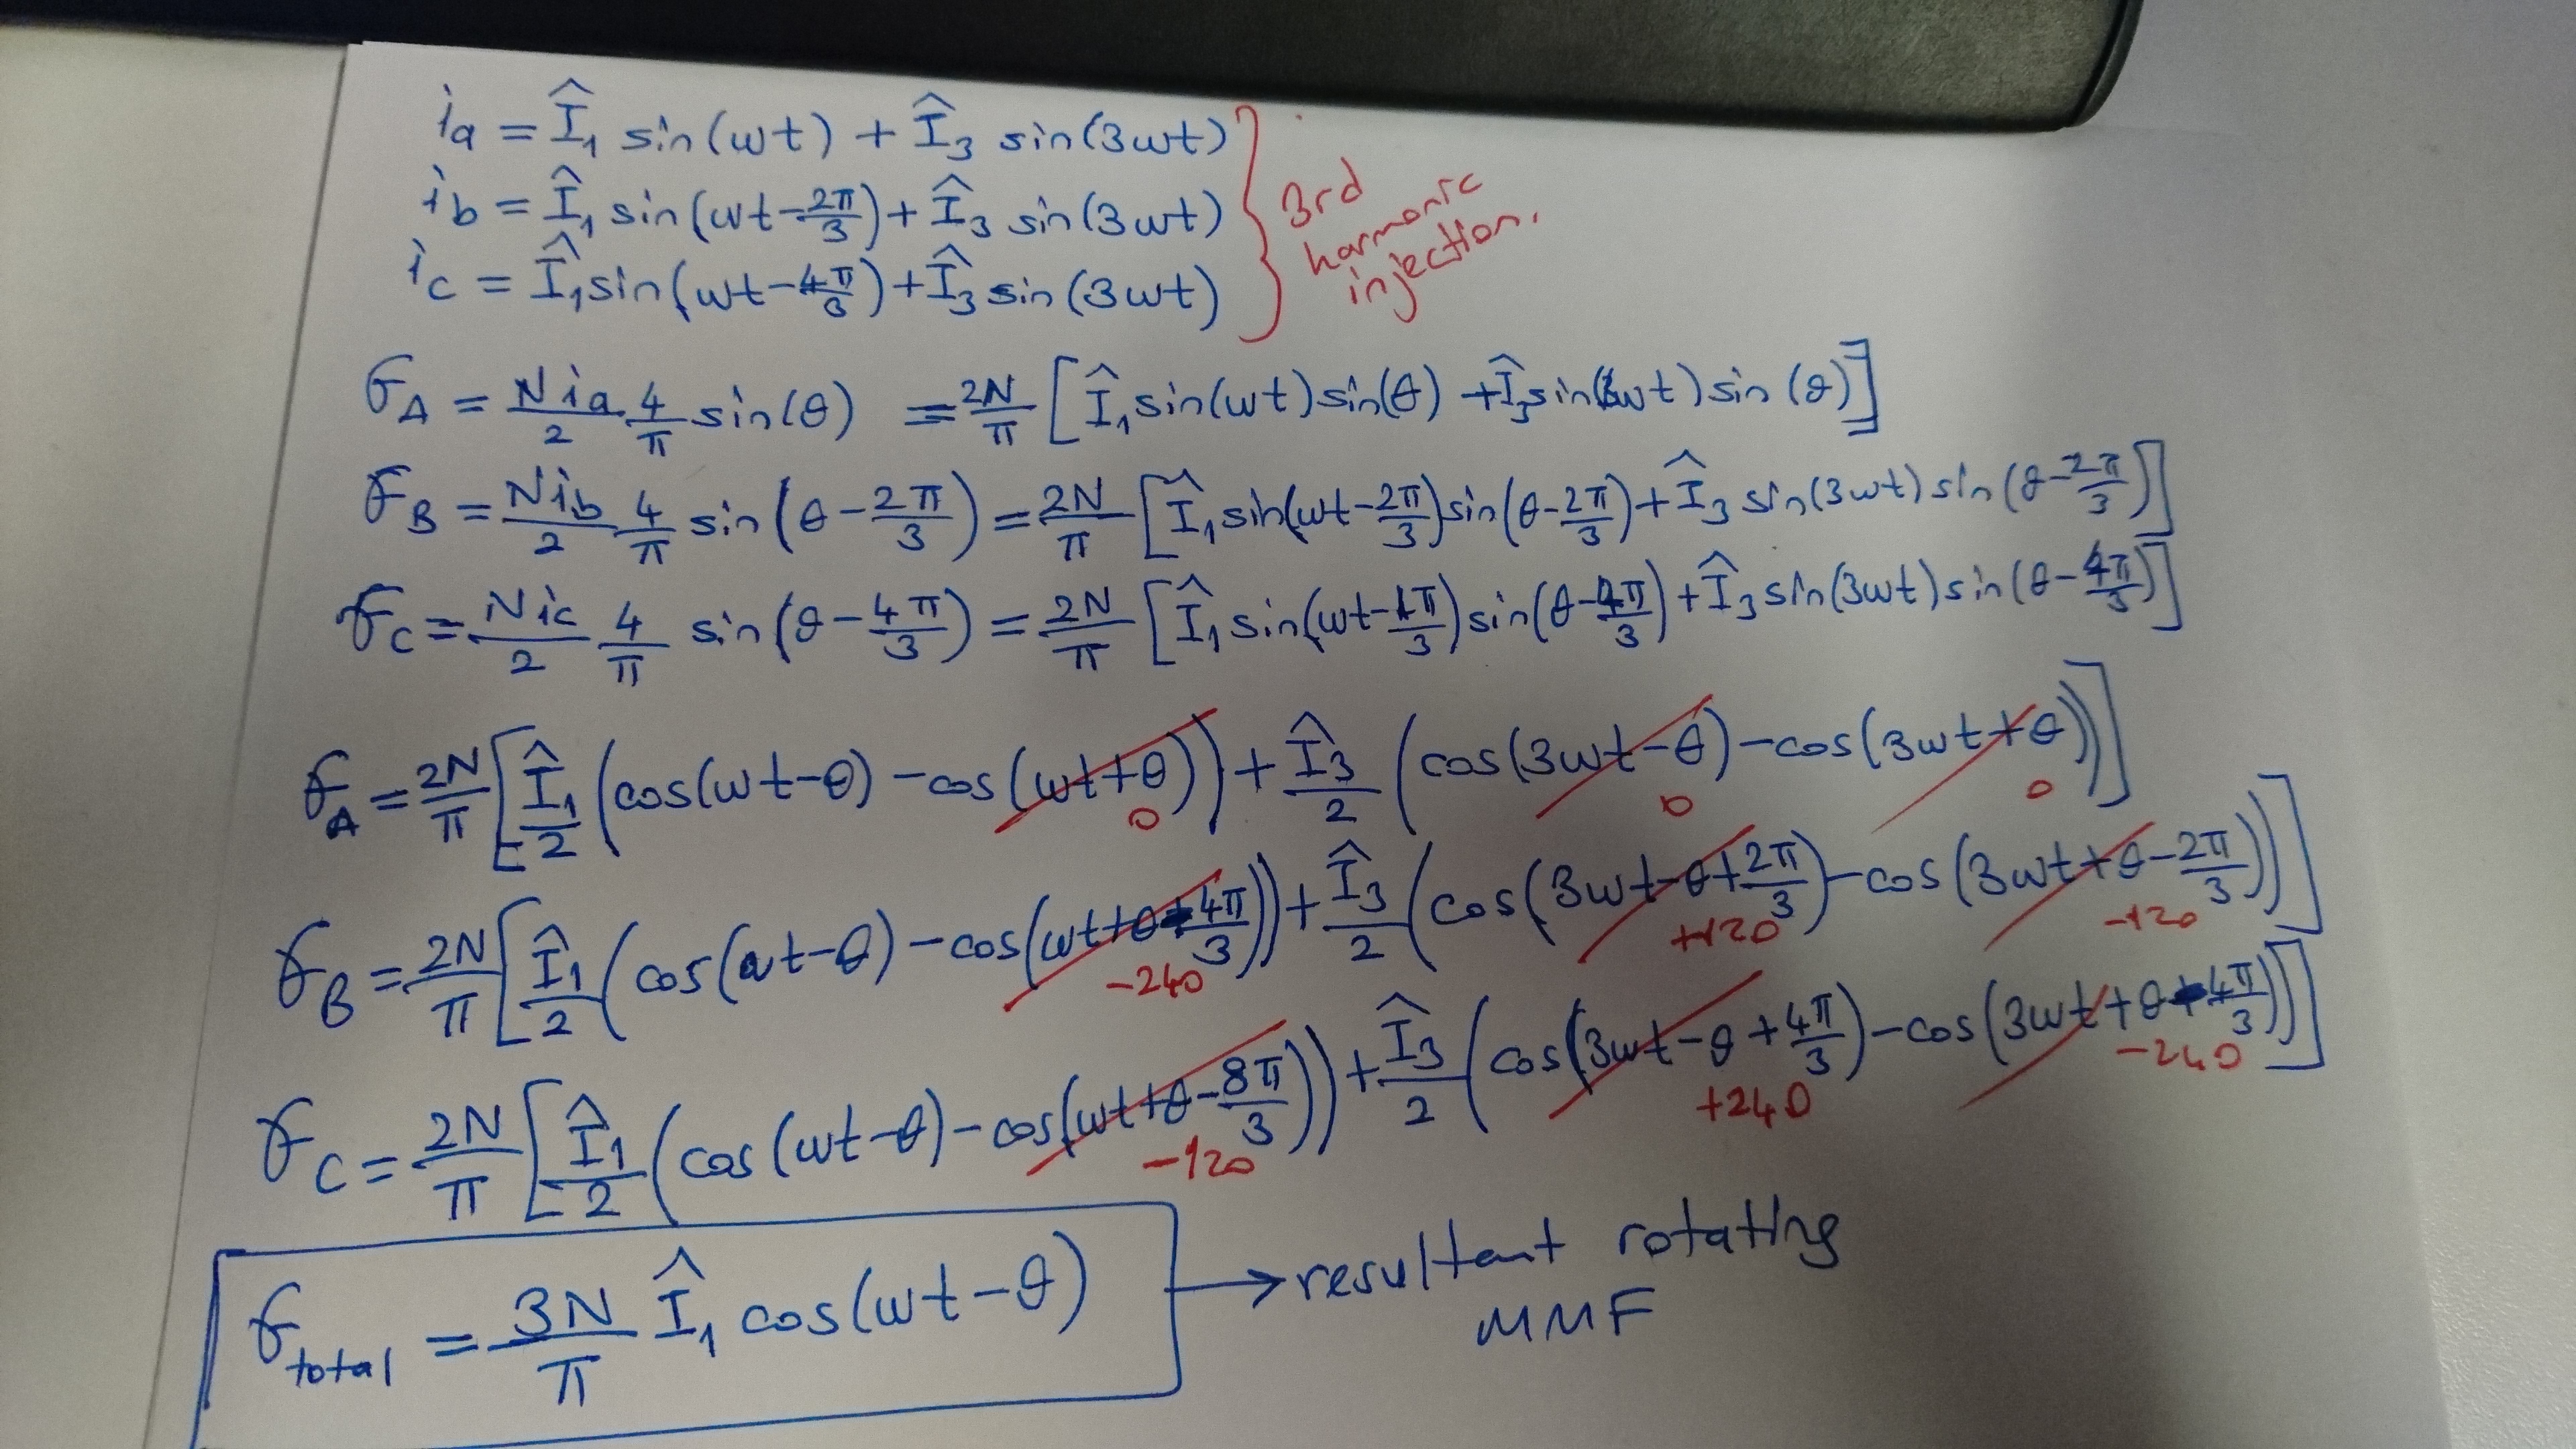 ia = Î₁ sin(ωt) + Î₃ sin(3ωt)
ib = Î₁ sin(ωt-2π/3) + Î₃ sin(3ωt)
ic = Î₁ sin(ωt-4π/3) + Î₃ sin(3ωt)
3rd
harmonic
injection.
F_A = Nia/2 4/π sin(θ) = 2N/π [Î₁ sin(ωt) sin(θ) + Î₃ sin(3ωt) sin(θ)]
F_B = Nib/2 4/π sin(θ-2π/3) = 2N/π [Î₁ sin(ωt-2π/3) sin(θ-2π/3) + Î₃ sin(3ωt) sin(θ-2π/3)]
F_C = Nic/2 4/π sin(θ-4π/3) = 2N/π [Î₁ sin(ωt-4π/3) sin(θ-4π/3) + Î₃ sin(3ωt) sin(θ-4π/3)]
F_A = 2N/π [Î₁/2 (cos(ωt-θ) - cos(ωt+θ)) + Î₃/2 (cos(3ωt-θ) - cos(3ωt+θ))]
0 0 0
F_B = 2N/π [Î₁/2 (cos(ωt-θ) - cos(ωt+θ-4π/3)) + Î₃/2 (cos(3ωt-θ+2π/3) - cos(3ωt+θ-2π/3))]
-240 +120 -120
F_C = 2N/π [Î₁/2 (cos(ωt-θ) - cos(ωt+θ-8π/3)) + Î₃/2 (cos(3ωt-θ+4π/3) - cos(3ωt+θ-4π/3))]
-120 +240 -240
F_total = 3N/π Î₁ cos(ωt-θ) → resultant rotating
MMF